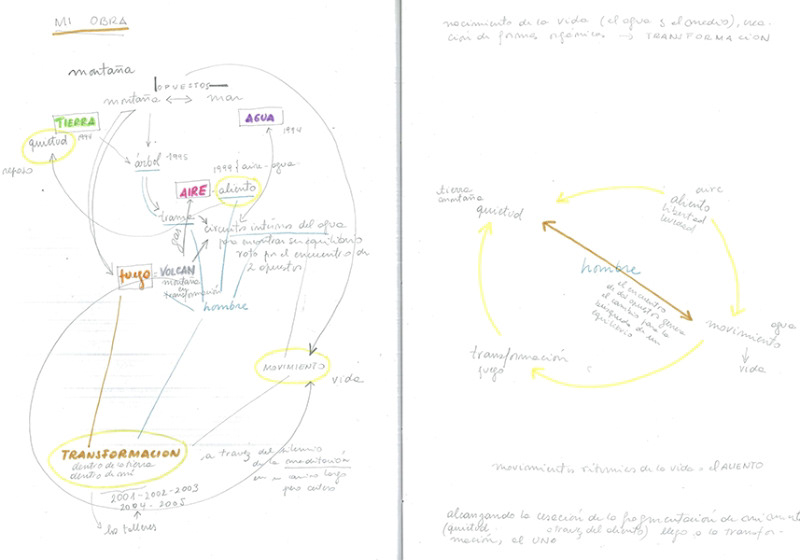 MI OBRA
montaña
OPUESTOS
montaña ↔ mar
TIERRA
1994
AGUA
1994
quietud
reposo
árbol - 1995
1999 / aire - agua
AIRE - aliento
trama
gas
circuitos internos del agua
para encontrar su equilibrio
roto por el encuentro de
2 opuestos
fuego = VOLCAN
montaña
en
transformación
hombre
MOVIMIENTO
vida
TRANSFORMACION
dentro de la tierra
dentro de mí
a través del silencio
de la meditación
en un camino largo
pero certero
2001-2002-2003
2004-2005
los talleres
nacimiento de la vida (el agua y el medio), crea-
ción de formas orgánicas → TRANSFORMACION
tierra
montaña
quietud
aire
aliento
libertad
hombre
el encuentro
de dos opuestos genera
el cambio para la
búsqueda de un
equilibrio
agua
movimiento
vida
transformación
fuego
movimientos rítmicos de la vida = el ALIENTO
alcanzando la cesación de la fragmentación de mí
(quietud a través del aliento) llego a la transfor-
mación, el UNO